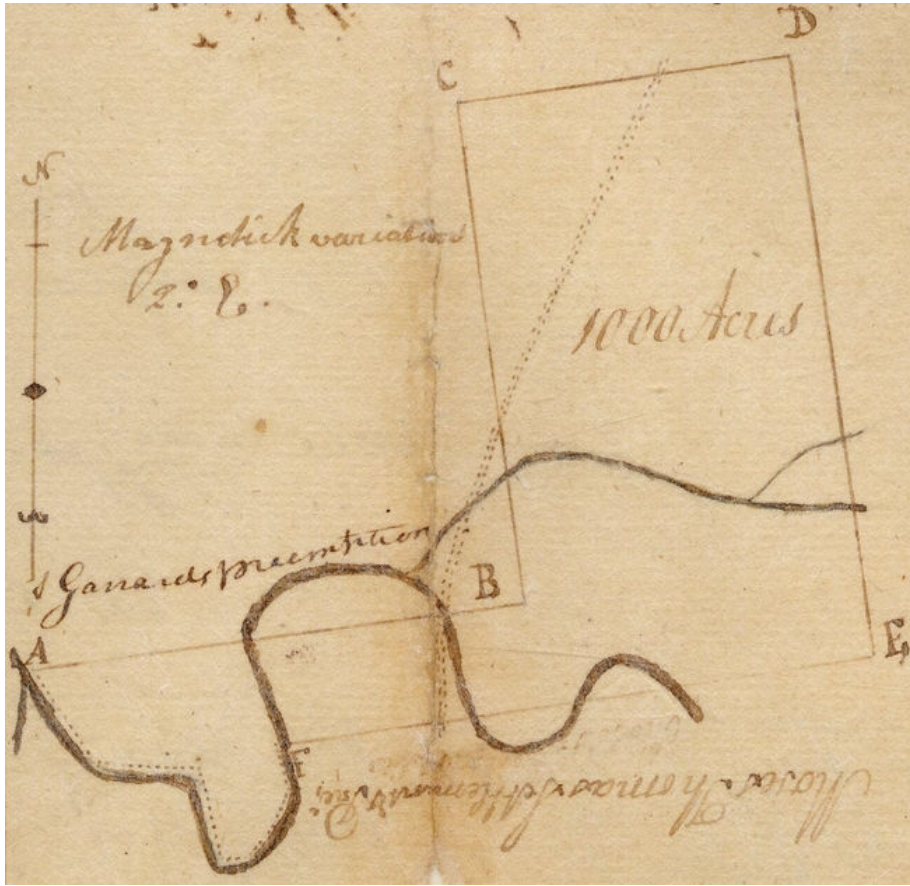 D
C
N
Magnetick variation
2.° E.
1000 Acres
Garrards preemtition
B
A
E
F
Moses Thomas Settlement &